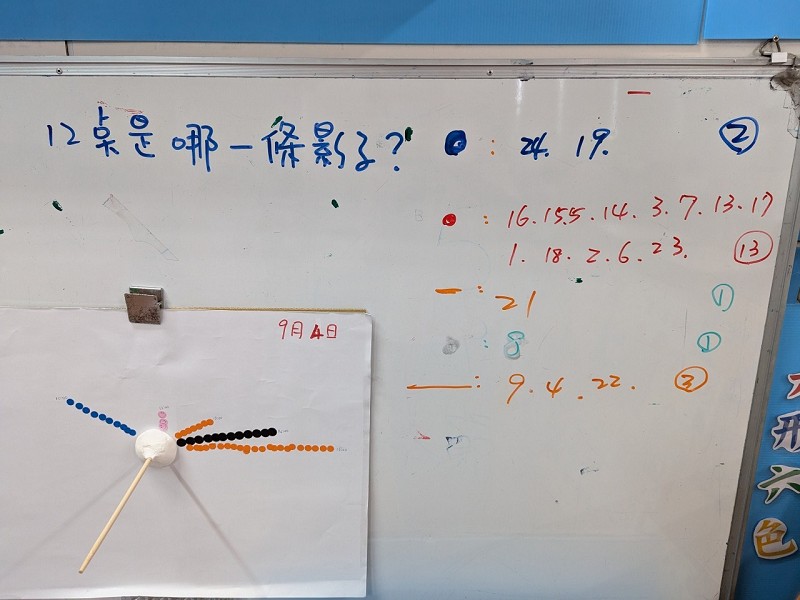 12桌是哪一條影子？
: 24. 19. ②
: 16. 15. 5. 14. 3. 7. 13. 17
1. 18. 2. 6. 23. ⑬
: 21 ①
: 8 ①
: 9. 4. 22. ③
9月4日
形
色